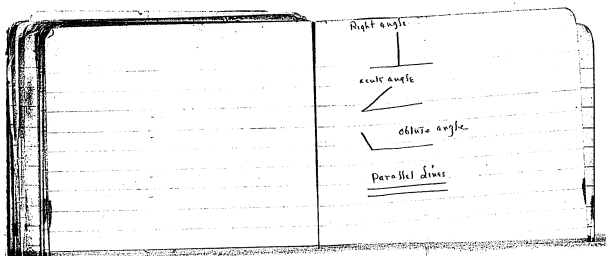 Right angle
acute angle
obtuse angle
Parallel Lines